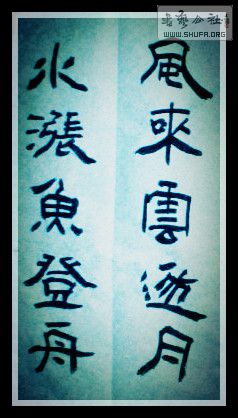 書藝公社
WWW.SHUFA.ORG
風來雲月
水漲魚登舟